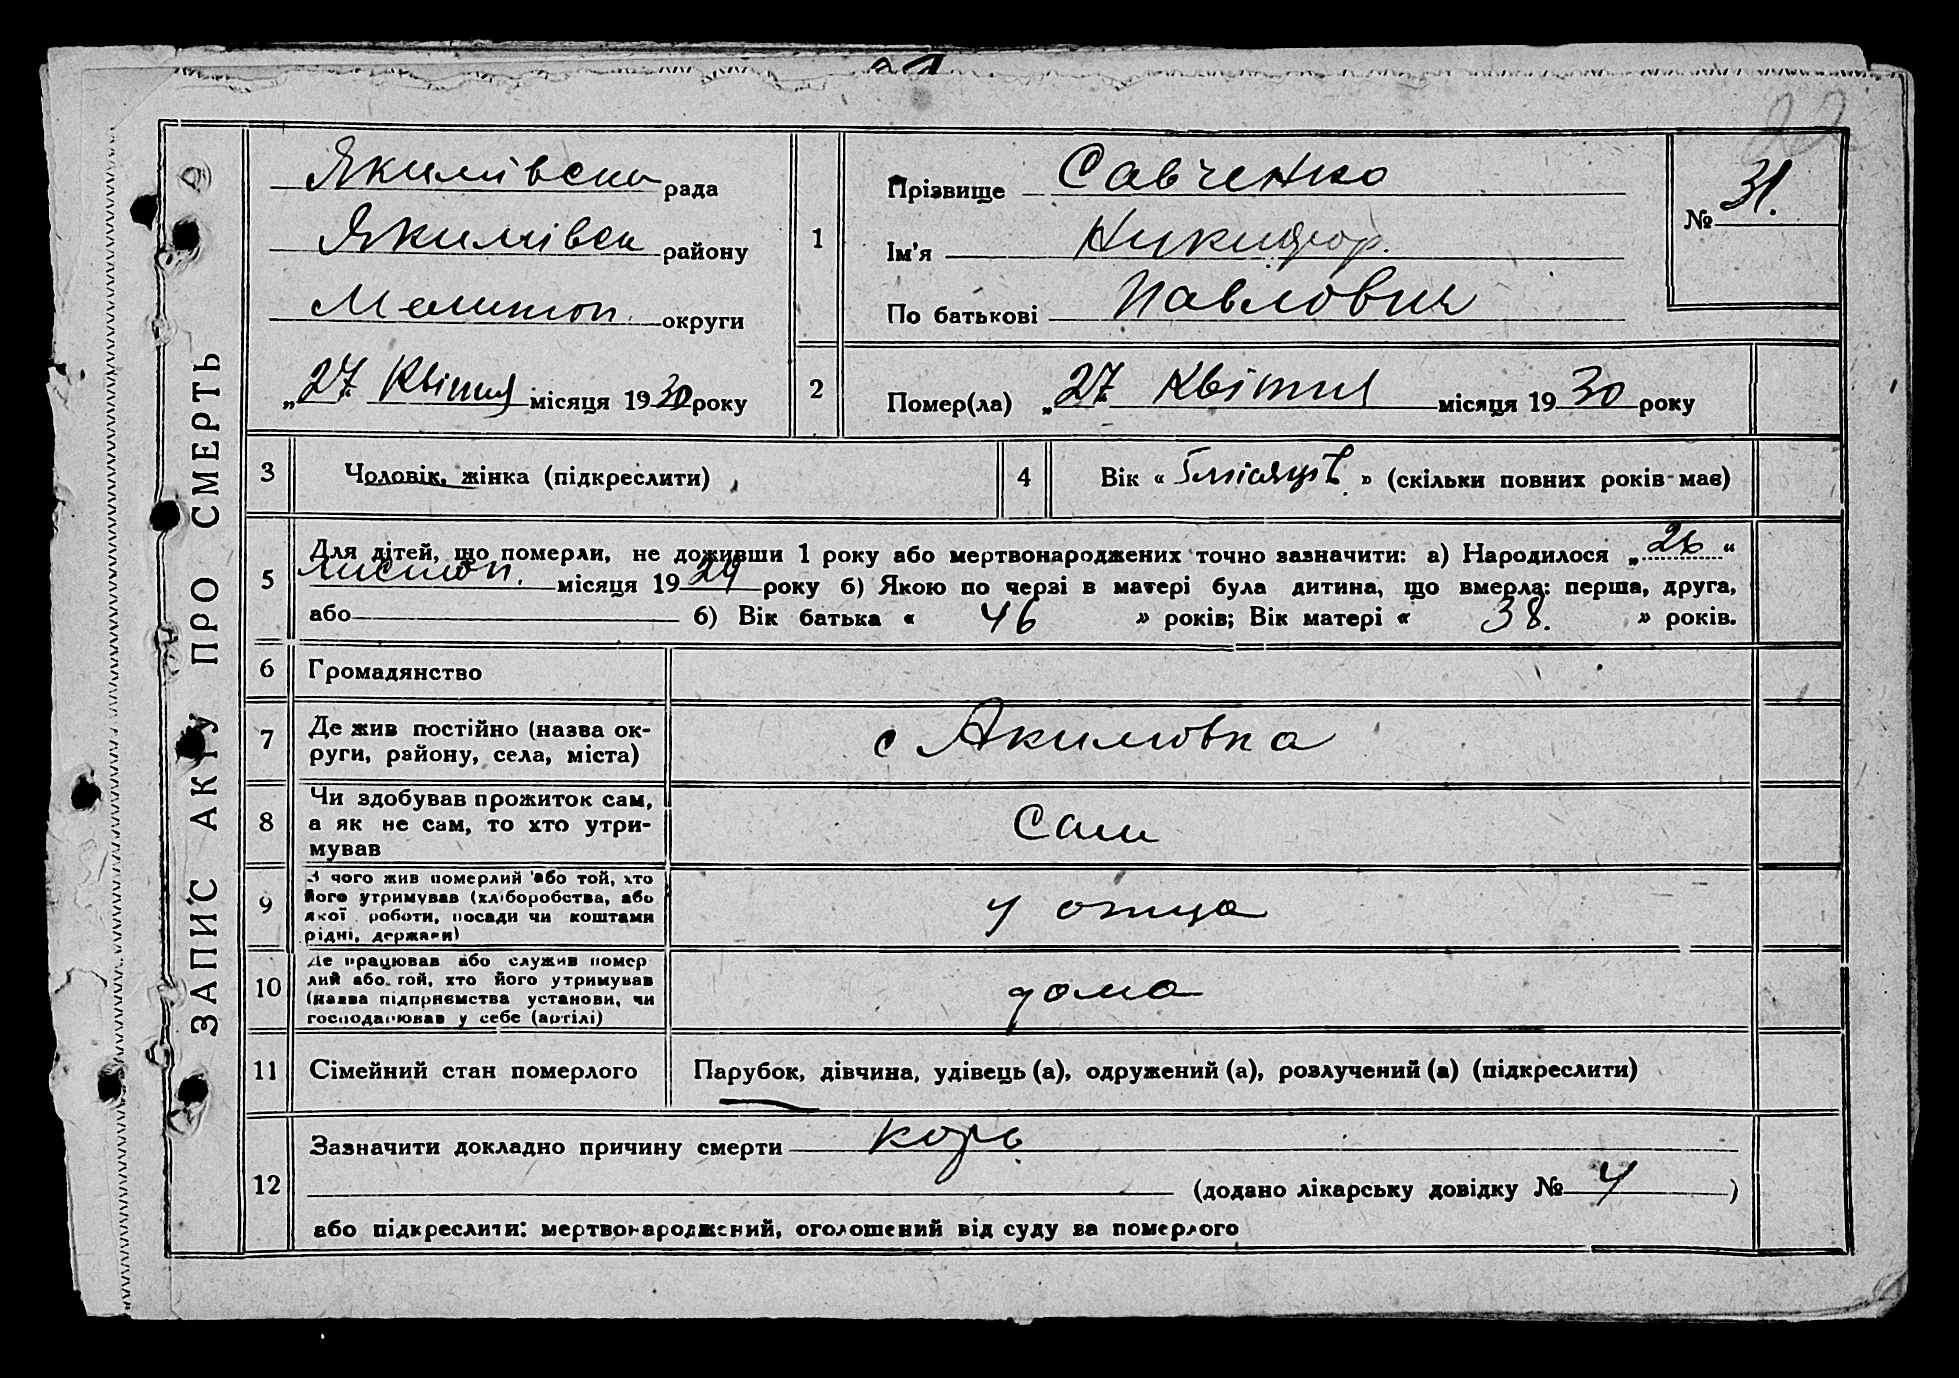 22
ЗАПИС АКТУ ПРО СМЕРТЬ
Якимівська рада
Якимівськ району
Мелитоп. округи
„27" Квітня місяця 1930 року
1
Прізвище Савченко
Ім'я Никифор.
По батькові Павлович
№ 31.
2
Помер(ла) „27" Квітня місяця 1930 року
3 Чоловік, жінка (підкреслити)
4 Вік « 5 місяців » (скільки повних років має)
5
Для дітей, що померли, не доживши 1 року або мертвонароджених точно зазначити: а) Народилося „26“
листоп. місяця 1929 року б) Якою по черзі в матері була дитина, що вмерла: перша, друга,
або б) Вік батька « 46 » років; Вік матері « 38. » років.
6 Громадянство
7 Де жив постійно (назва ок-
руги, району, села, міста)
с Акимовка
8 Чи здобував прожиток сам,
а як не сам, то хто утри-
мував
Сам
9 З чого жив померлий або той, хто
його утримував (хліборобства, або
якої роботи, посади чи коштами
рідні, держави)
у отца
10 Де працював або служив помер
лий або той, хто його утримував
(назва підприємства установи, чи
господарював у себе (артілі)
дома
11 Сімейний стан померлого
Парубок, дівчина, удівець (а), одружений (а), розлучений (а) (підкреслити)
12
Зазначити докладно причину смерти корь
(додано лікарську довідку № 4 )
або підкреслити: мертвонароджений, оголошений від суду за померлого